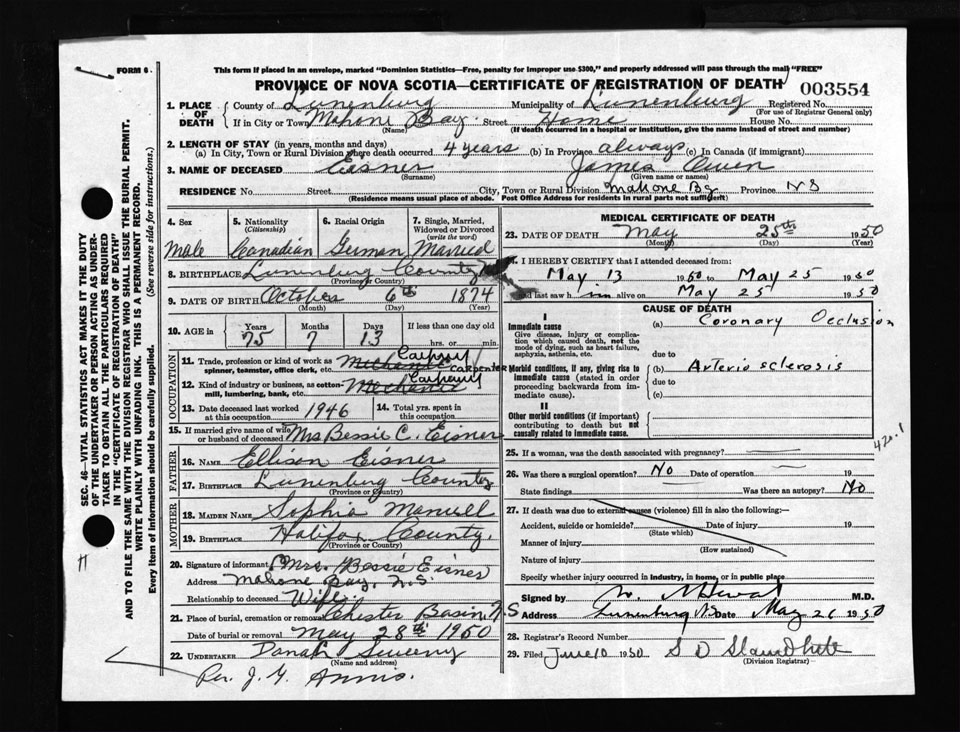 FORM 6.
This form if placed in an envelope, marked "Dominion Statistics—Free, penalty for improper use $300," and properly addressed will pass through the mail "FREE"
PROVINCE OF NOVA SCOTIA—CERTIFICATE OF REGISTRATION OF DEATH
003554
1. PLACE OF DEATH
County of Lunenburg Municipality of Lunenburg Registered No.
(For use of Registrar General only)
If in City or Town Mahone Bay Street Home House No.
(Name) (If death occurred in a hospital or institution, give the name instead of street and number)
2. LENGTH OF STAY (in years, months and days)
(a) In City, Town or Rural Division where death occurred 4 years (b) In Province always (c) In Canada (if immigrant)
3. NAME OF DECEASED Eisner James Owen
(Surname) (Given name or names)
RESIDENCE No. Street City, Town or Rural Division Mahone By Province NS
(Residence means usual place of abode. Post Office Address for residents in rural parts not sufficient)
4. Sex 5. Nationality (Citizenship) 6. Racial Origin 7. Single, Married, Widowed or Divorced (write the word)
Male Canadian German Married
8. BIRTHPLACE Lunenburg County
(Province or Country)
9. DATE OF BIRTH October 6th 1874
(Month) (Day) (Year)
10. AGE in Years Months Days If less than one day old
75 7 13 hrs. or min.
OCCUPATION
11. Trade, profession or kind of work as spinner, teamster, office clerk, etc. Mechanic Carpenter carpenter
12. Kind of industry or business, as cotton-mill, lumbering, bank, etc. Mechanic Carpenter
13. Date deceased last worked at this occupation 1946 14. Total yrs. spent in this occupation
15. If married give name of wife or husband of deceased Mrs Bessie C. Eisner
FATHER
16. NAME Ellison Eisner
17. BIRTHPLACE Lunenburg County
(Province or Country)
MOTHER
18. MAIDEN NAME Sophia Manuell
19. BIRTHPLACE Halifax County.
(Province or Country)
20. Signature of informant Mrs. Bessie Eisner
Address Mahone Bay, N.S.
Relationship to deceased Wife
21. Place of burial, cremation or removal Chester Basin, N.S
Date of burial or removal May 28th 1950
22. UNDERTAKER Sweeny
(Name and address)
Per. J. Y. Annis.
MEDICAL CERTIFICATE OF DEATH
23. DATE OF DEATH May 25th 1950
(Month) (Day) (Year)
I HEREBY CERTIFY that I attended deceased from:
May 13 1950 to May 25 1950
and last saw him alive on May 25 1950
CAUSE OF DEATH
I
Immediate cause
Give disease, injury or complication which caused death, not the mode of dying, such as heart failure, asphyxia, asthenia, etc.
(a) Coronary Occlusion
due to
Morbid conditions, if any, giving rise to immediate cause (stated in order proceeding backwards from immediate cause).
(b) Arterio sclerosis
due to
(c)
II
Other morbid conditions (if important) contributing to death but not causally related to immediate cause.
420.1
25. If a woman, was the death associated with pregnancy?
26. Was there a surgical operation? No Date of operation 19
State findings Was there an autopsy? No
27. If death was due to external causes (violence) fill in also the following:—
Accident, suicide or homicide? Date of injury 19
(State which)
Manner of injury
(How sustained)
Nature of injury
Specify whether injury occurred in industry, in home, or in public place
Signed by M.D.
Address Lunenburg NS Date May 26 1950
28. Registrar's Record Number
29. Filed June 10 1950 S D
(Division Registrar)
SEC. 46—VITAL STATISTICS ACT MAKES IT THE DUTY OF THE UNDERTAKER OR PERSON ACTING AS UNDERTAKER TO OBTAIN ALL THE PARTICULARS REQUIRED IN THE "CERTIFICATE OF REGISTRATION OF DEATH" AND TO FILE THE SAME WITH THE DIVISION REGISTRAR WHO SHALL ISSUE THE BURIAL PERMIT.
WRITE PLAINLY WITH UNFADING INK. THIS IS A PERMANENT RECORD.
Every item of information should be carefully supplied. (See reverse side for instructions.)